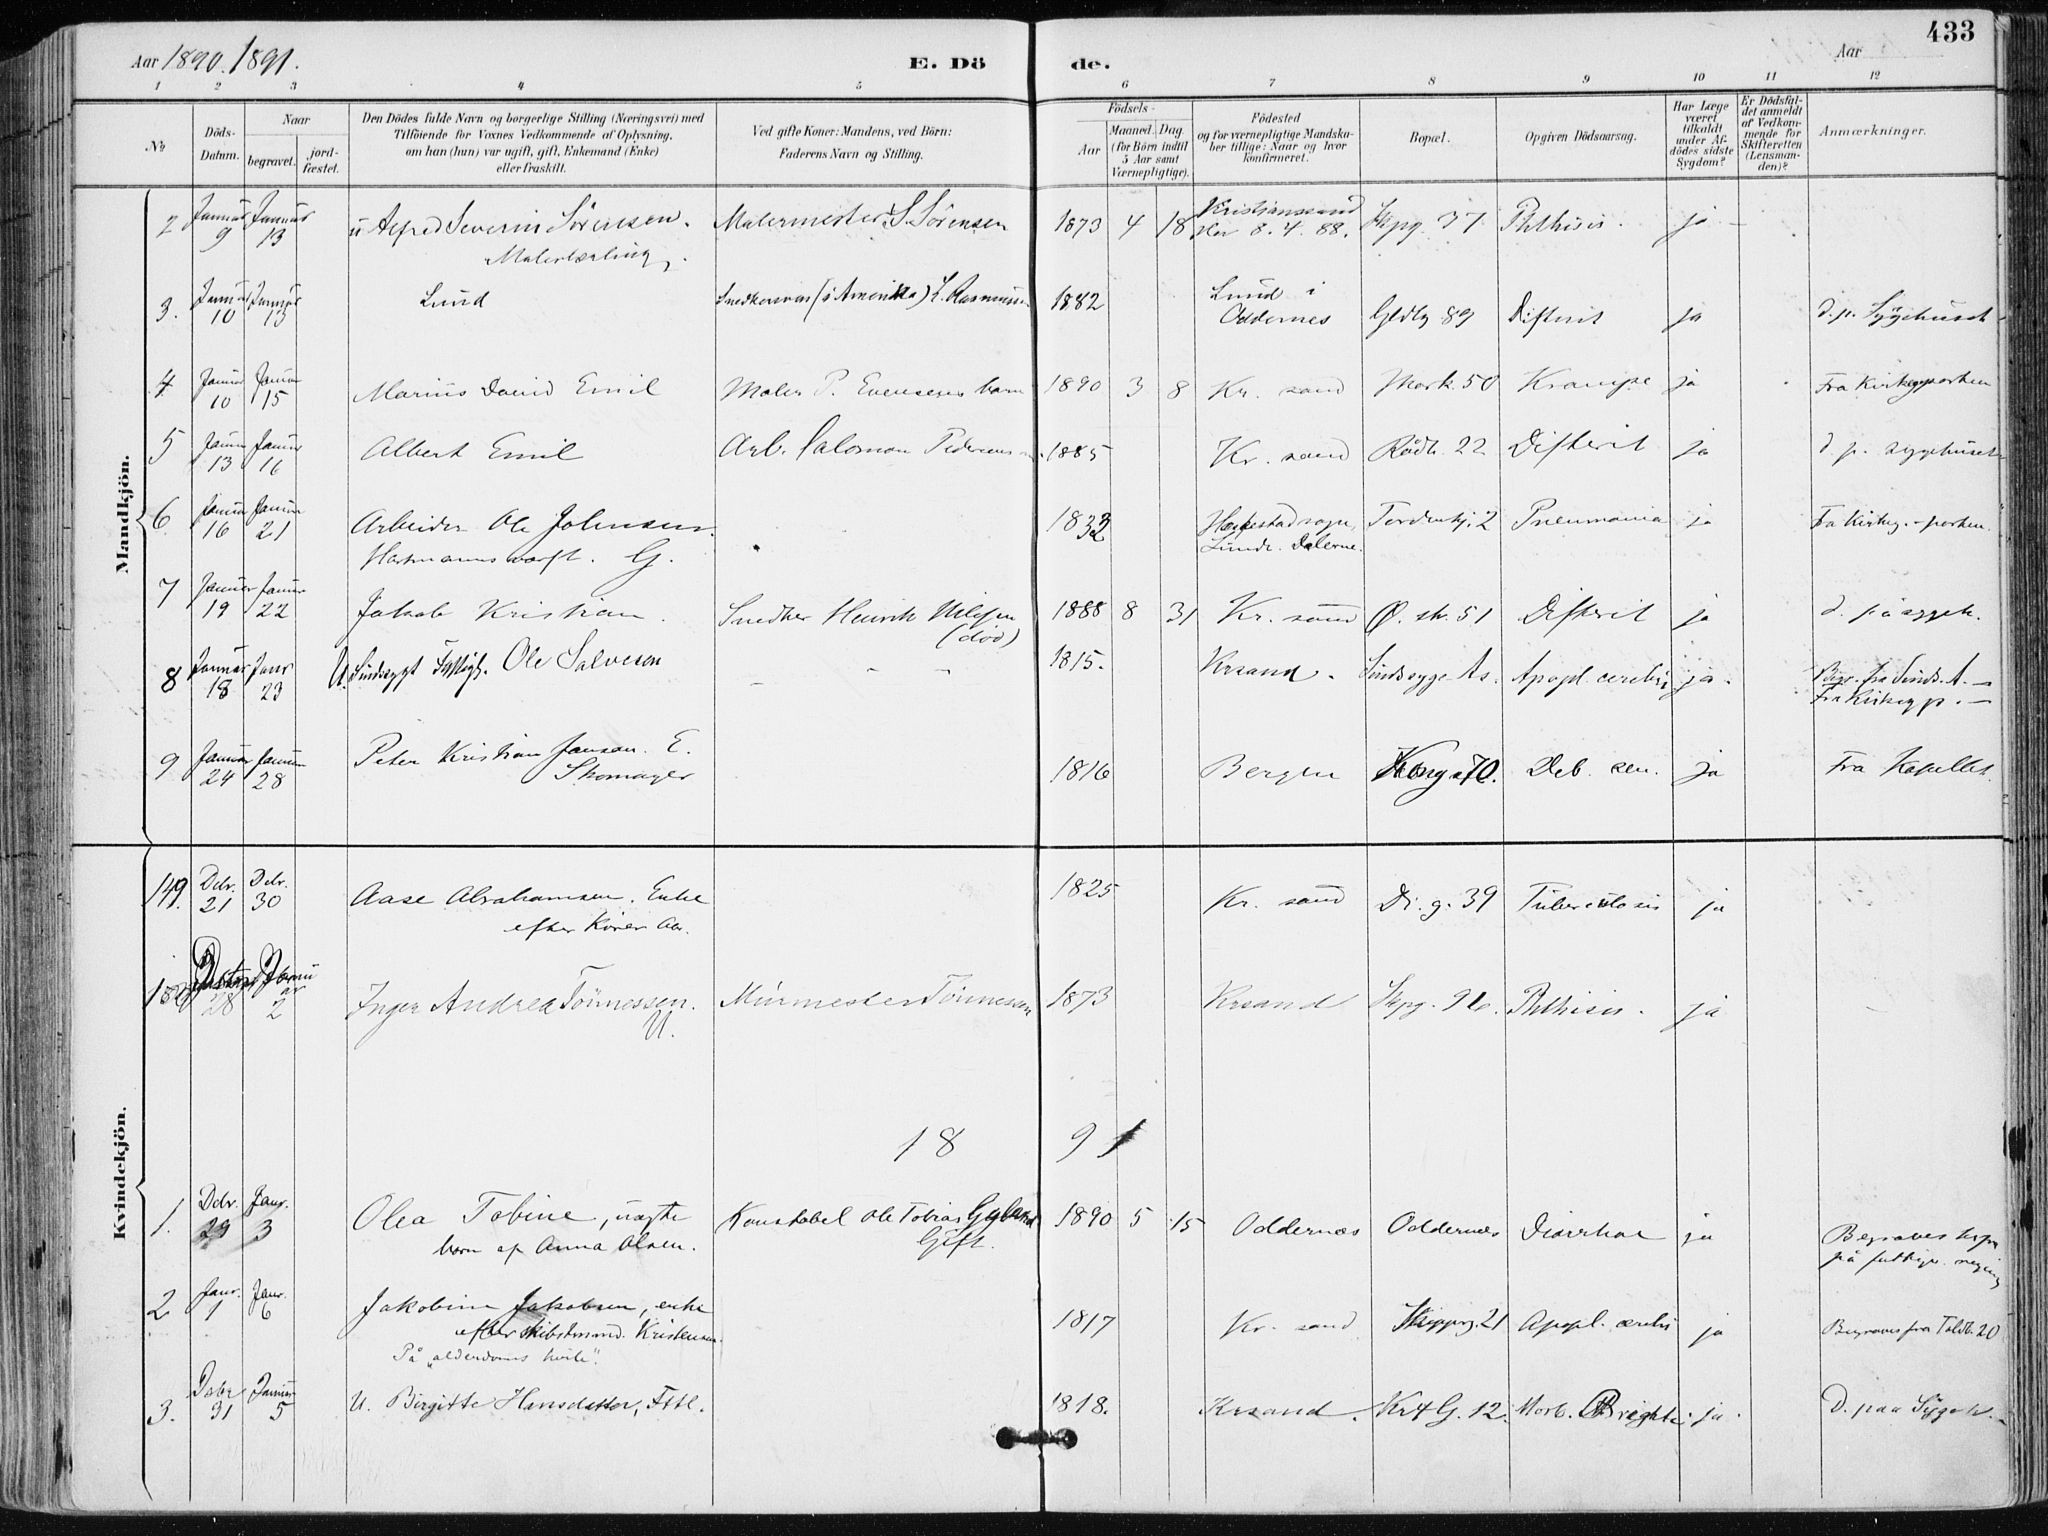 433
Aar 1890. 1891.
E. Dö de.
Aar
1 2 3 4 5 6 7 8 9 10 11 12
No
Döds-Datum.
Naar
begravet.
jord-fæstet.
Den Dödes fulde Navn og borgerlige Stilling (Næringsvei) med
Tilföiende for Voxnes Vedkommende af Oplysning,
om han (hun) var ugift, gift, Enkemand (Enke)
eller fraskilt.
Ved gifte Koner: Mandens, ved Börn:
Faderens Navn og Stilling.
Födsels-
Aar
Maaned. Dag.
(for Börn indtil
5 Aar samt
Værnepligtige).
Födested
og for værnepligtige Mandska-
ber tillige: Naar og hvor
konfirmeret.
Bopæl.
Opgiven Dödsaarsag.
Har Læge
været
tilkaldt
under Af-
dödes sidste
Sygdom?
Er Dödsfal-
det anmeldt
af Vedkom-
mende for
Skifteretten
(Lensman-
den)?
Anmærkninger.
Mandkjön.
2 Januar 9 Januar 13 u Alfred Severin Sörensen. Malermester S. Sörensen 1873 4 18 Kristianssand Skpg. 37 Phthisis. ja
Malerlærling. 8. 4. 88.
3. Januar 10 Januar 13 Lund Snedkersvend (i Amerika) L. Rasmussen 1882 Lund i Oddernes Gldtg 89 Difterit ja d. p. Sygehuset
4 Januar 10 Januar 15 Marius David Emil Maler P. Evensens barn 1890 3 8 Kr. sand Mark. 50 Krampe ja Fra Kirkegporten
5 Januar 13 Januar 16 Albert Emil Arb. Salomon Pedersens 1885 Kr. sand Rådh. 22 Difterit ja d. p. sygehuset
6 Januar 16 Januar 21 Arbeider Ole Johnsen. 1832 sogn, Tordenskj. 2 Pneumonia ja Fra Kirkeg.-porten.
G. Dalerne.
7 Januar 19 Januar 22 Jakob Kristian. Snedker Henrik Nilssen (död) 1888 8 31 Kr. sand Ø. str. 51 Difterit ja d. på sygeh.
8 Januar 18 Janr 23 U. Sindssygt Fattigl. Ole Salvesen 1815. Krsand. Sindssyge As. Apopl. cerebri ja. Begr. fra Sinds. A.
Fra Kirkegp.
9 Januar 24 Januar 28 Peter Kristian Jansen. E. 1816 Bergen Kong. 70. Deb. sen. ja Fra Kapellet.
Skomager
Kvindekjön.
149. Dcbr. 21 Dcbr. 30 Aase Abrahamsen. Enke 1825 Kr. sand Dr. g. 39 Tuberculosis ja
efter Kører Abr.
150 28 Januar 2 Inger Andrea Tönnessen. Murmester Tönnesen 1873 Krsand Skpg. 96. Phthisis. ja
U.
18 91
1. Dcbr. 29 Janr. 3 Olea Tobine, uægte Konstabel Ole Tobias Gyland 1890 5 15 Oddernæs Oddernæs Diarrhoe ja Begraves
barn af Anna Olsen. Gift. på fattigv. regning
2 Janr. 1 Janr. 6 Jakobine Jakobsen, enke 1817 Kr. sand Skipprg. 21 Apopl. cerebri ja Begraves fra Toldb. 20
efter skibstmmd. Kristensen
På "alderdoms hvile".
3. Dcbr 31 Januar 5 U. Birgitte Hansdatter, Fttl. 1818. Krsand. Kr4 G. 12. Morb. Brightii ja. D. paa Sygeh.